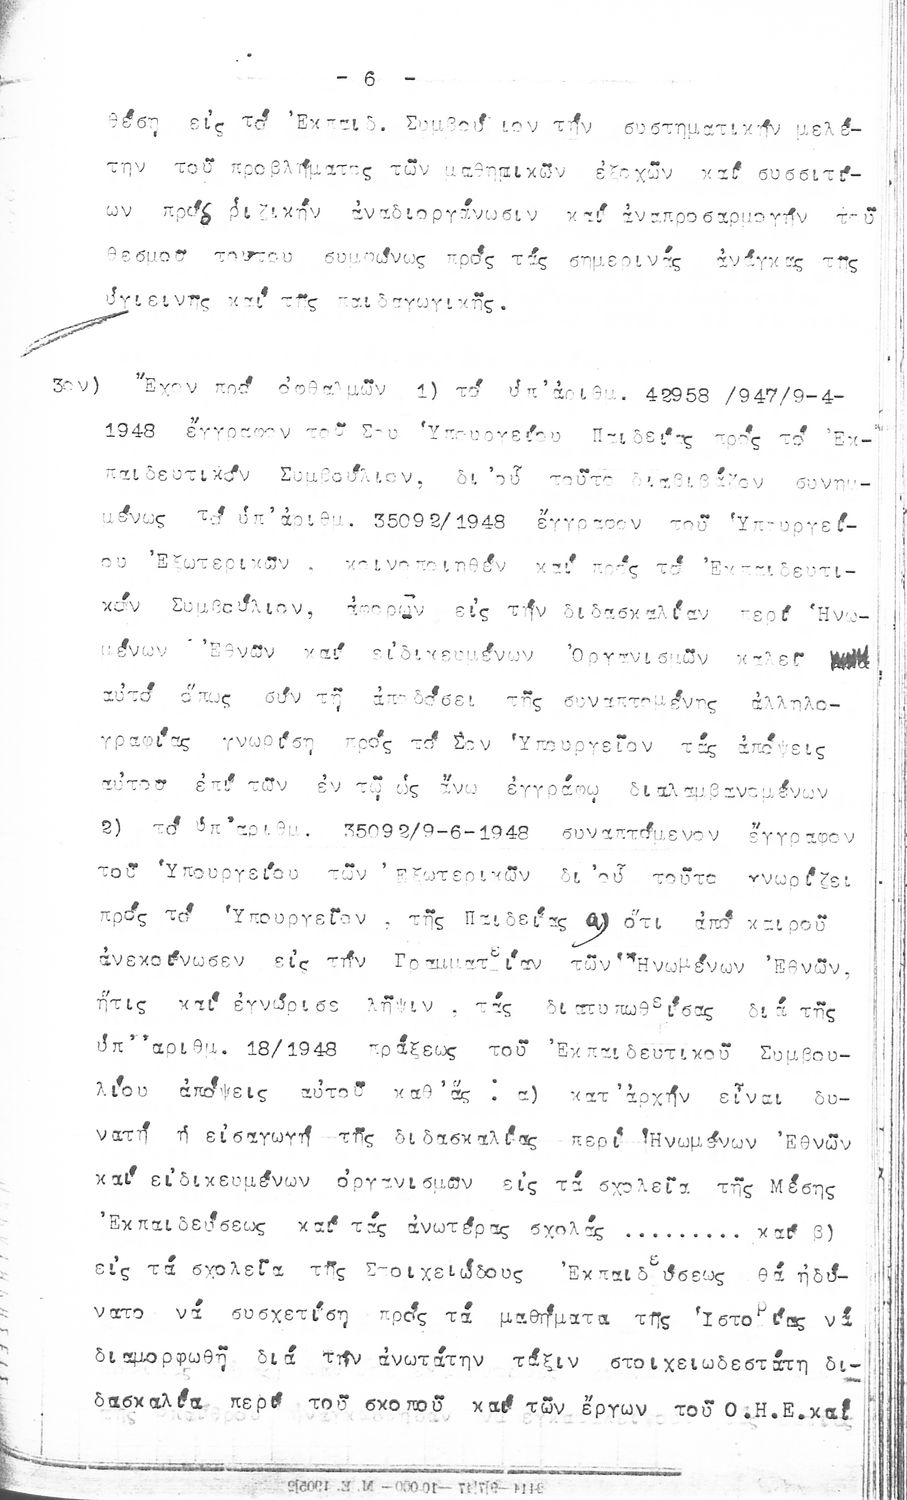 - 6 -
θέση εἰς τό Ἐκπαιδ. Συμβού ιον τήν συστηματικήν μελέ-
την τοῦ προβλήματος τῶν μαθητικῶν ἐξοχῶν καί συσσιτί-
ων πρός ριζικήν ἀναδιοργάνωσιν καί ἀναπροσαρμογήν τοῦ
θεσμοῦ τουτου συμφώνως πρός τάς σημερινάς ἀνάγκας τῆς
ὑγιεινῆς καί τῆς παιδαγωγικῆς.
3ον) Ἔχον πρό ὀφθαλμῶν 1) τό ὑπ'ἀριθμ. 42958 /947/9-4-
1948 ἔγγραφον τοῦ Σου Ὑπουργείου Παιδείας πρός τό Ἐκ-
παιδευτικόν Συμβούλιον, δι'οὗ τοῦτο διαβιβάζον συνημ-
μένως τό ὑπ'ἀριθμ. 35092/1948 ἔγγραφον τοῦ Ὑπουργεί-
ου Ἐξωτερικῶν , κοινοποιηθέν καί πρός τό Ἐκπαιδευτι-
κόν Συμβούλιον, ἀφορῶν εἰς τήν διδασκαλίαν περί Ἡνω-
μένων Ἐθνῶν καί εἰδικευμένων Ὀργανισμῶν καλεῖ
αὐτό ὅπως σύν τῇ ἀποδόσει τῆς συναπτομένης ἀλληλο-
γραφίας γνωρίση πρός τό Σον Ὑπουργεῖον τάς ἀπόψεις
αὐτοῦ ἐπί τῶν ἐν τῷ ὡς ἄνω ἐγγράφῳ διαλαμβανομένων
2) τό ὑπ'αριθμ. 35092/9-6-1948 συναπτόμενον ἔγγραφον
τοῦ Ὑπουργείου τῶν Ἐξωτερικῶν δι'οὗ τοῦτο γνωρίζει
πρός τό Ὑπουργεῖον , τῆς Παιδείας α) ὅτι ἀπό καιροῦ
ἀνεκοίνωσεν εἰς τήν Γραμματείαν τῶν Ἡνωμένων Ἐθνῶν,
ἥτις καί ἐγνώρισε λῆψιν , τάς διατυπωθείσας διά τῆς
ὑπ''αριθμ. 18/1948 πράξεως τοῦ Ἐκπαιδευτικοῦ Συμβου-
λίου ἀπόψεις αὐτοῦ καθ'ἅς : α) κατ'ἀρχήν εἶναι δυ-
νατή ἡ εἰσαγωγή τῆς διδασκαλίας περί Ἡνωμένων Ἐθνῶν
καί εἰδικευμένων ὀργανισμῶν εἰς τά σχολεῖα τῆς Μέσης
Ἐκπαιδεύσεως καί τάς ἀνωτέρας σχολάς ......... καί β)
εἰς τά σχολεῖα τῆς Στοιχειώδους Ἐκπαιδεύσεως θά ἠδύ-
νατο νά συσχετίση πρός τά μαθήματα τῆς Ἱστορίας νά
διαμορφωθῆ διά τήν ἀνωτάτην τάξιν στοιχειωδεστάτη δι-
δασκαλία περί τοῦ σκοποῦ καί τῶν ἔργων τοῦ Ο.Η.Ε.καί